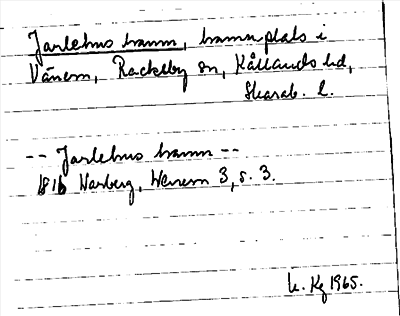 Jarlehus hamn, hamnplats i
Vänern, Rackeby sn, Kållands hd,
Skarab. l.
-- Jarlehus hamn --
1816 Warberg, Wenern 3, s. 3.
Kg 1965.